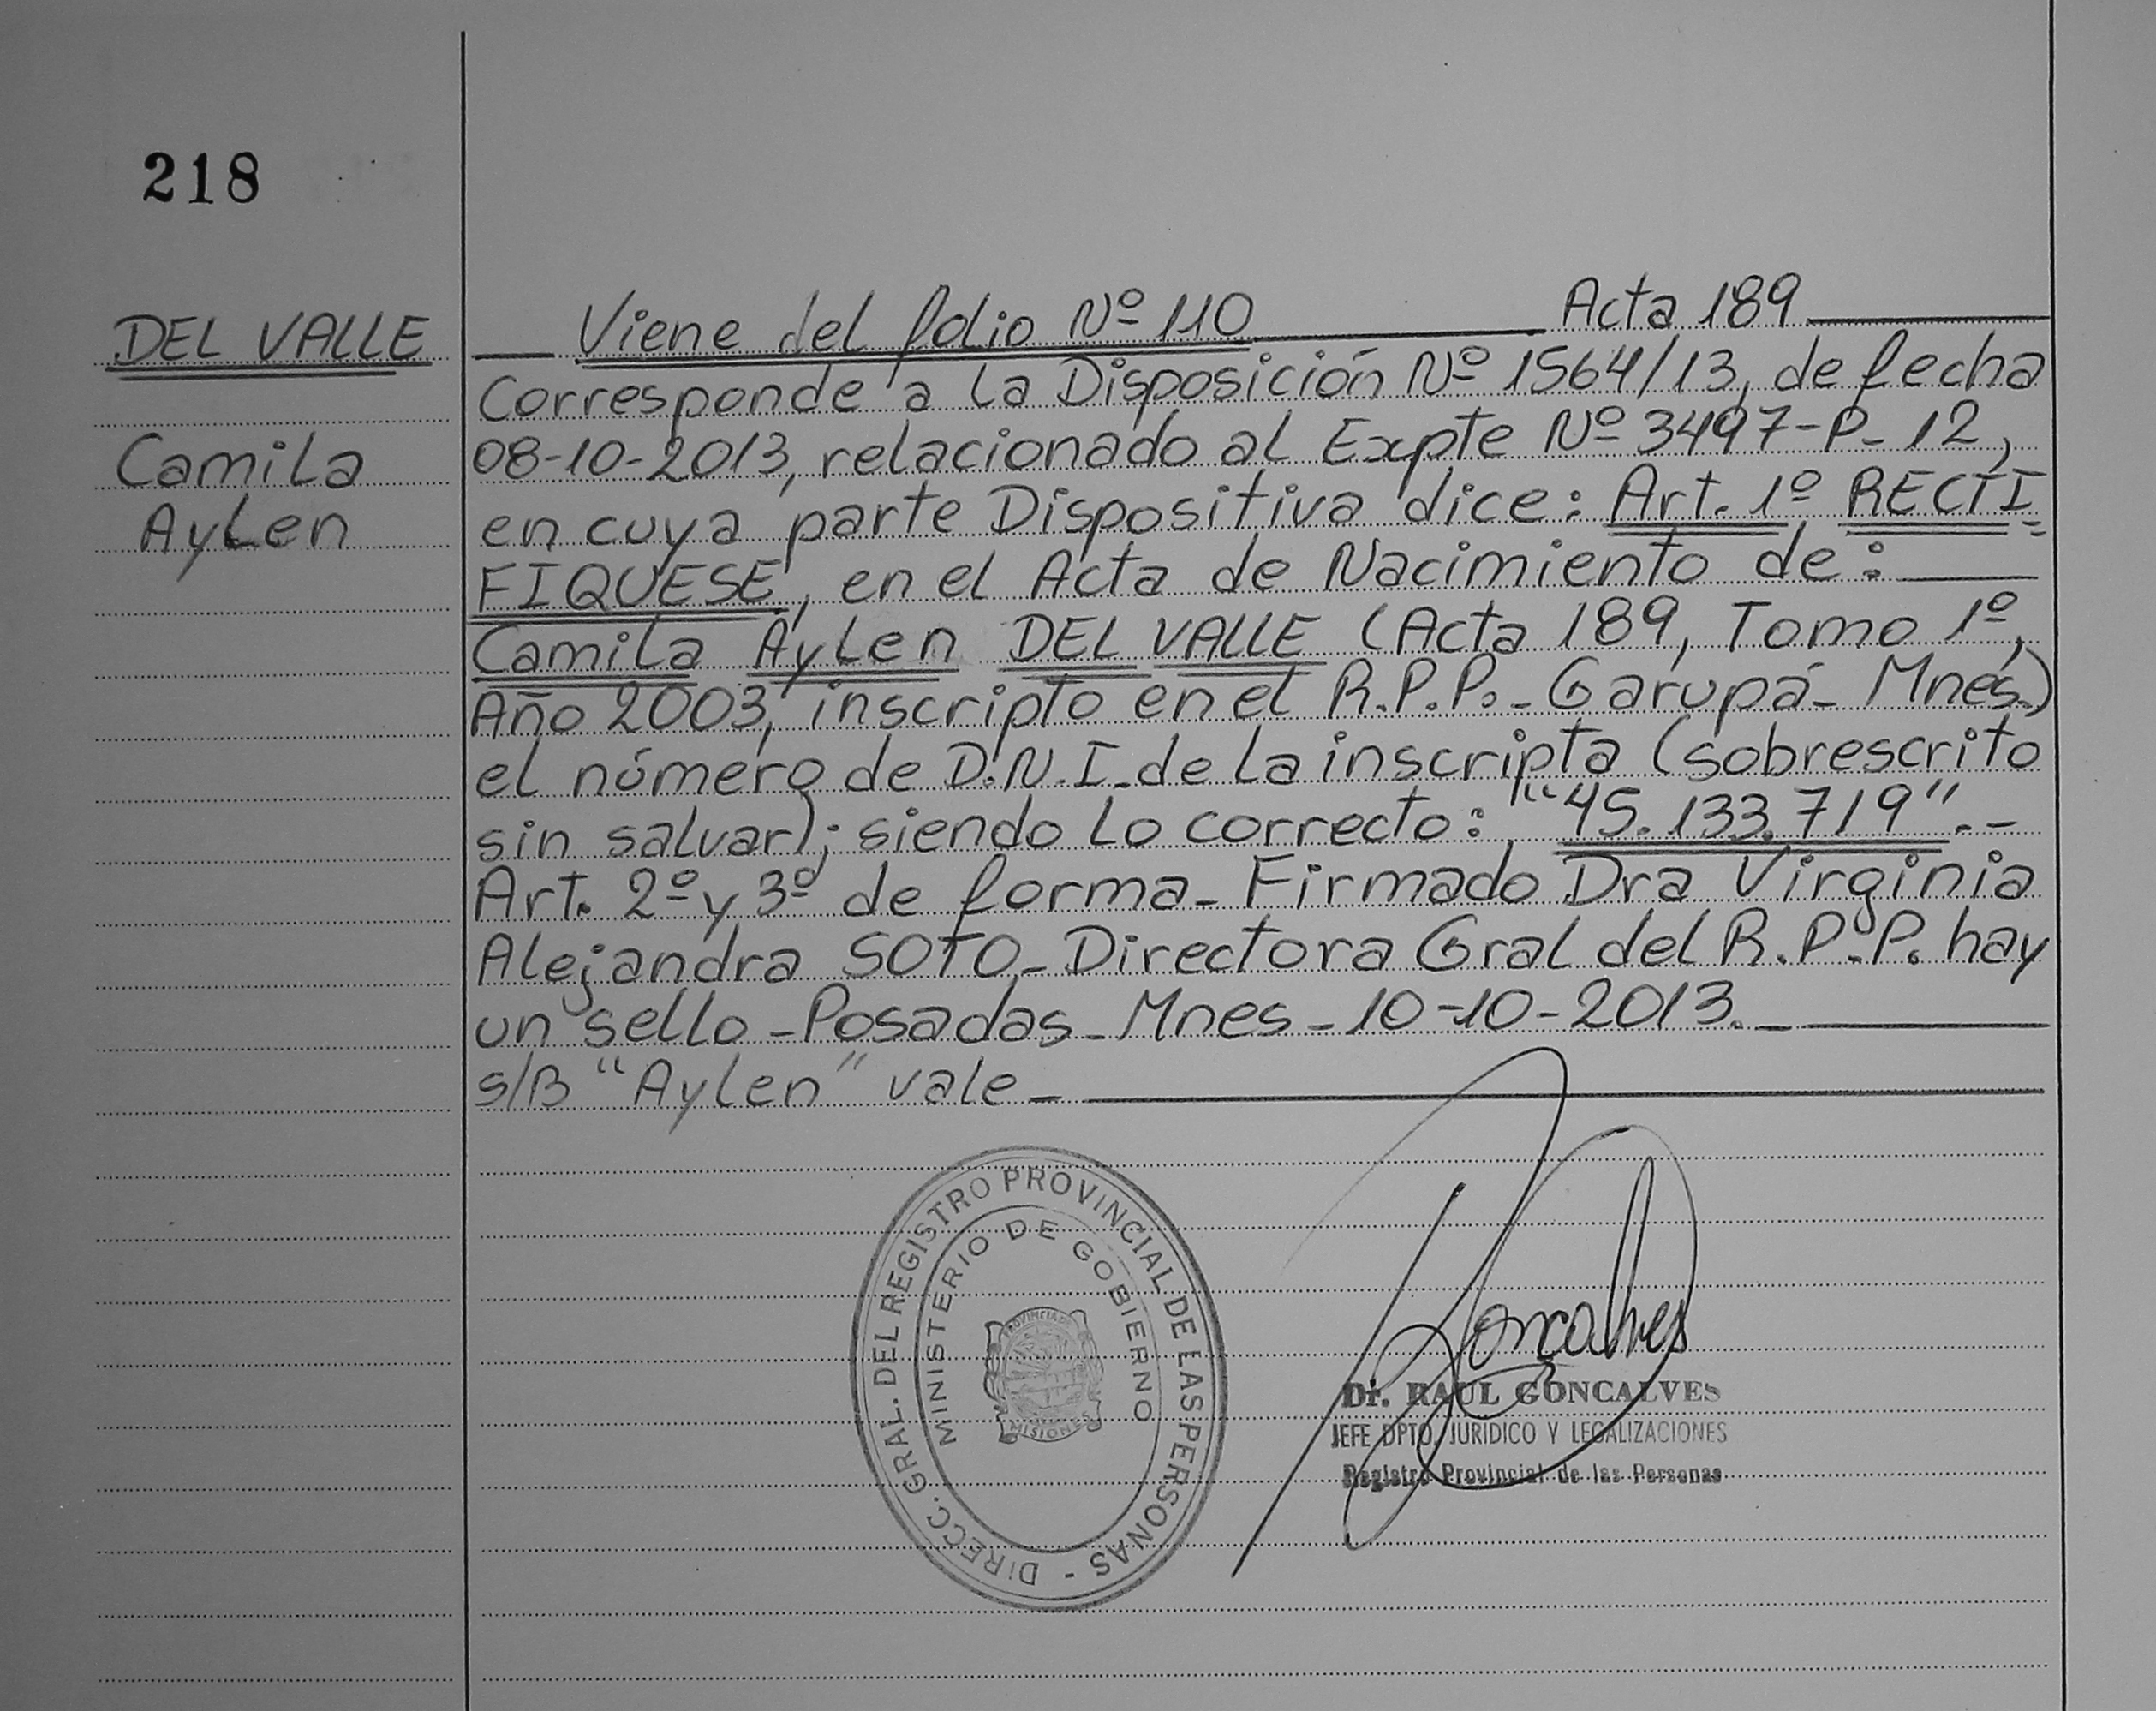 218
DEL VALLE
Camila
Aylen
Viene del folio Nº 110 Acta 189
Corresponde a la Disposición Nº 1564/13, de fecha
08-10-2013, relacionado al Expte Nº 3497-P-12,
en cuya parte Dispositiva dice: Art. 1º RECTI
FIQUESE, en el Acta de Nacimiento de:
Camila Aylen DEL VALLE (Acta 189, Tomo 1º,
Año 2003, inscripto en el R.P.P.- Garupá- Mnes.)
el número de D.N.I. de la inscripta (sobrescrito
sin salvar); siendo lo correcto: "45.133.719".-
Art. 2º y 3º de forma- Firmado Dra Virginia
Alejandra SOTO- Directora Gral del R.P.P. hay
un sello-Posadas-Mnes-10-10-2013.-
s/B "Aylen" vale-
DIRECC. GRAL. DEL REGISTRO PROVINCIAL DE LAS PERSONAS -
MINISTERIO DE GOBIERNO
PROVINCIA DE
MISIONES
Goncalves
Dr. RAUL GONCALVES
JEFE DPTO. JURIDICO Y LEGALIZACIONES
Registro Provincial de las Personas